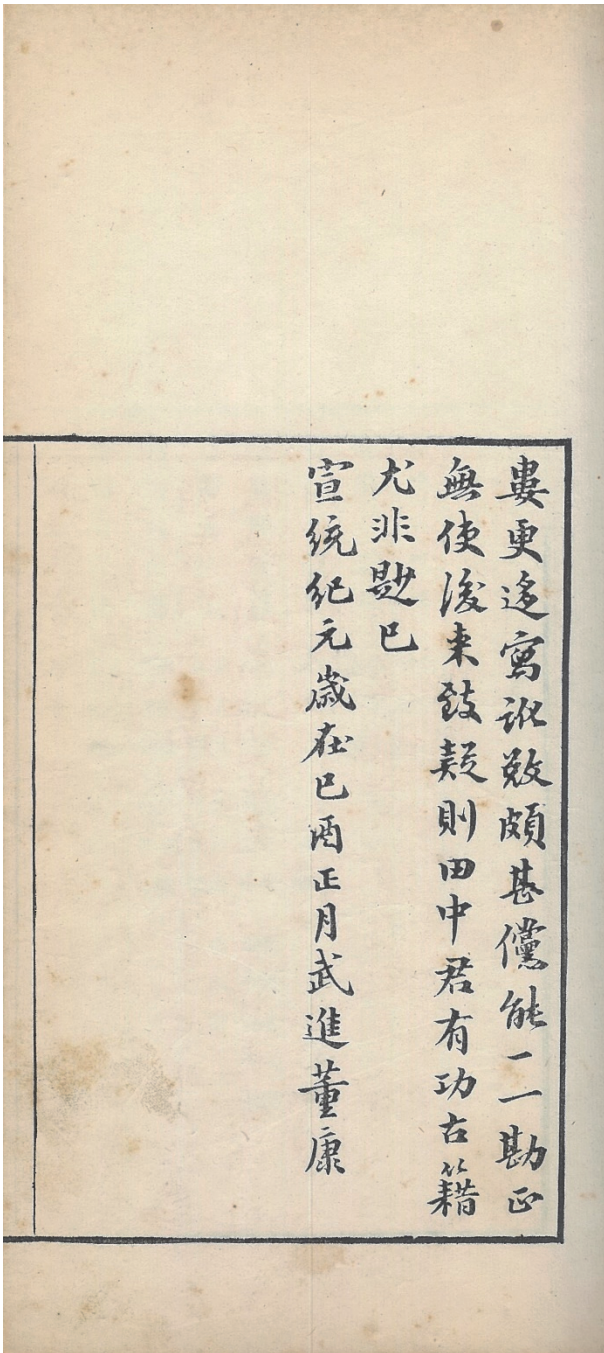 婁更迻寫訛敚頗甚儻能一一勘正
無使後来致疑則田中君有功古籍
尤非尟已
宣統紀元歲在己酉正月武進董康